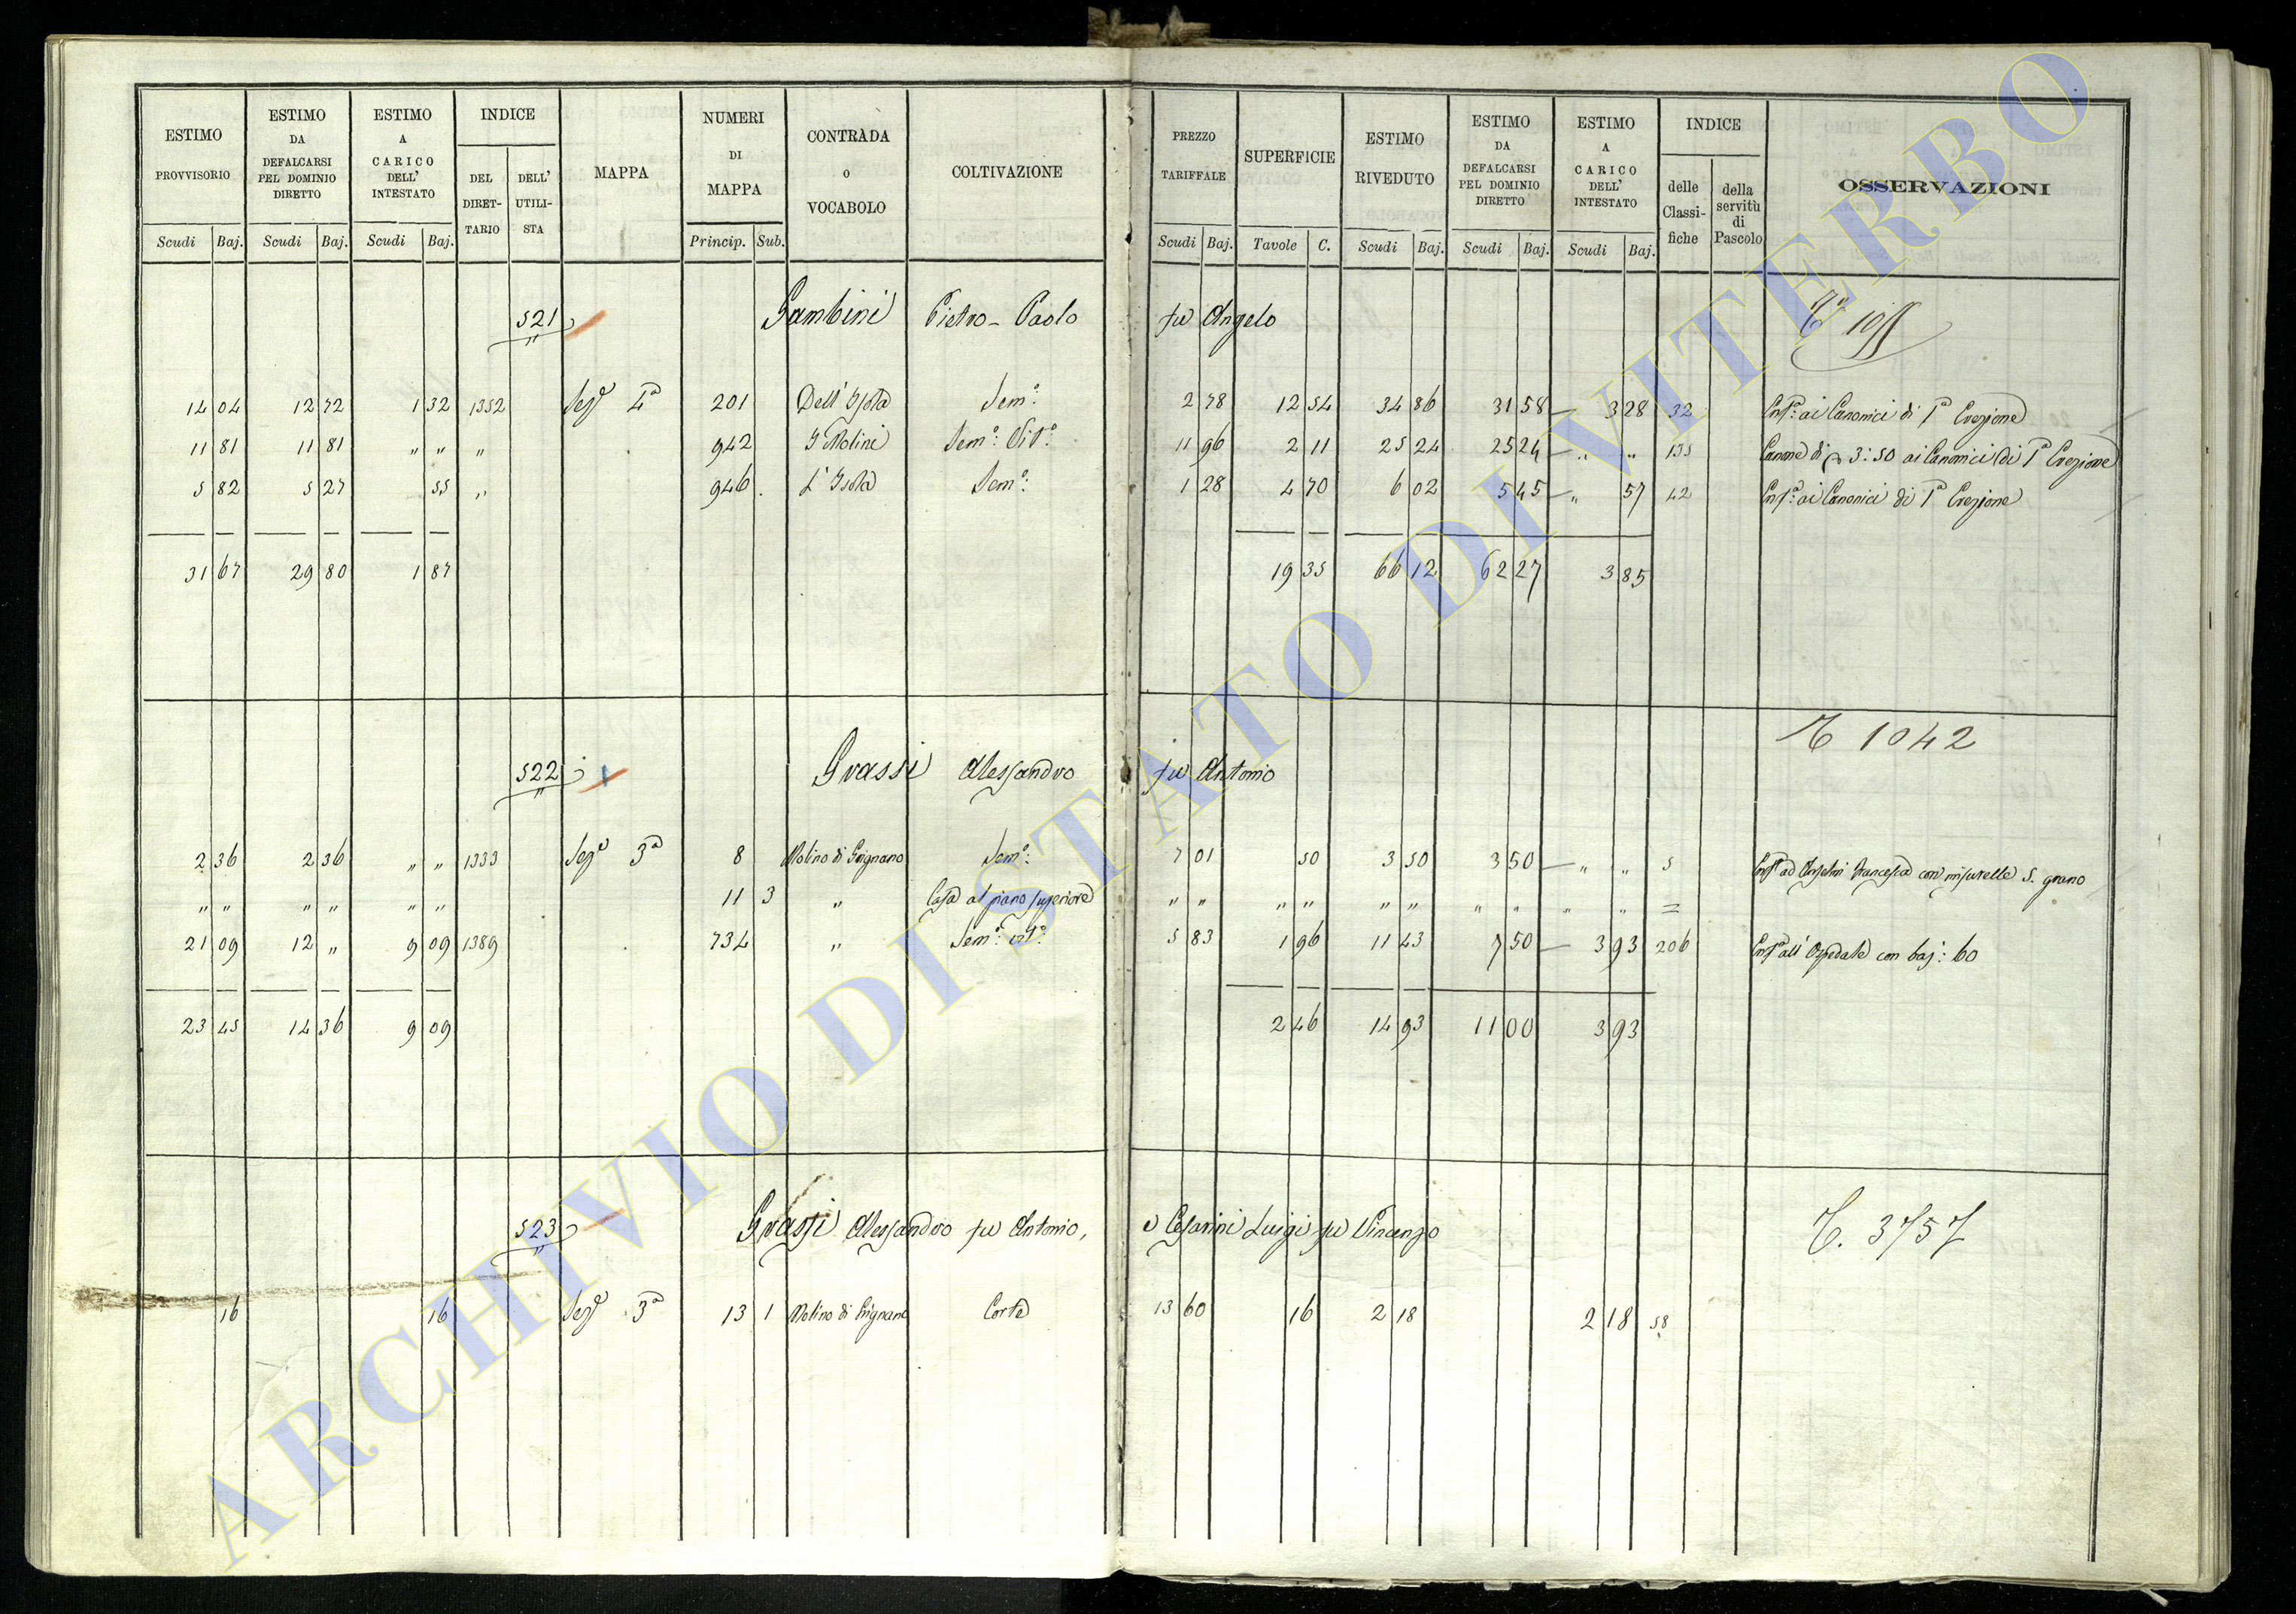 ESTIMO PROVVISORIO
ESTIMO DA DEFALCARSI PEL DOMINIO DIRETTO
ESTIMO A CARICO DELL' INTESTATO
INDICE
DEL DIRET- TARIO
DELL' UTILI- STA
MAPPA
NUMERI DI MAPPA
CONTRADA o VOCABOLO
COLTIVAZIONE
PREZZO TARIFFALE
SUPERFICIE
ESTIMO RIVEDUTO
ESTIMO DA DEFALCARSI PEL DOMINIO DIRETTO
ESTIMO A CARICO DELL' INTESTATO
INDICE
delle Classi- fiche
della servitù di Pascolo
OSSERVAZIONI
Scudi Baj. Scudi Baj. Scudi Baj. Princip. Sub. Scudi Baj. Tavole C. Scudi Baj. Scudi Baj. Scudi Baj.
521 Gambini Pietro-Paolo fu Angelo
14 04 12 72 1 32 1352 Sezᵉ 4ᵃ 201 Dell'Isola Semº: 2 78 12 54 34 86 31 58 — 3 28 32 Enfª: ai Canonici di 1ª Erezione
11 81 11 81 " " " 942 I Molini Semº: Vitº: 11 96 2 11 25 24 25 24 — " " 135 Canone di 3:50 ai Canonici di 1ª Erezione
5 82 5 27 55 " 946 L'Isola Semº: 1 28 4 70 6 02 5 45 — " 57 42 Enfª: ai Canonici di 1ª Erezione
31 67 29 80 1 87 19 35 66 12 62 27 3 85
T 1042
522 Grassi Alessandro fu Antonio
2 36 2 36 " " 1333 Sezᵉ 3ᵃ 8 Molino di Grignano Semº: 7 01 50 3 50 3 50 — " " 5 Enfª ad Anselmi Francesca con misurelle 5. grano
" " " " " " 11 3 " Casa al piano superiore " " " " " " " " " " =
21 09 12 " 9 09 1389 734 " Semº: vitº: 5 83 1 96 11 43 7 50 — 3 93 206 Enfª all'Ospedale con baj: 60
23 45 14 36 9 09 2 46 14 93 11 00 3 93
523 Grassi Alessandro fu Antonio, e Cesarini Luigi fu Vincenzo
T. 3757
16 16 Sezᵉ 3ᵃ 13 1 Molino di Grignano Corte 13 60 16 2 18 2 18 58
ARCHIVIO DI STATO DI VITERBO